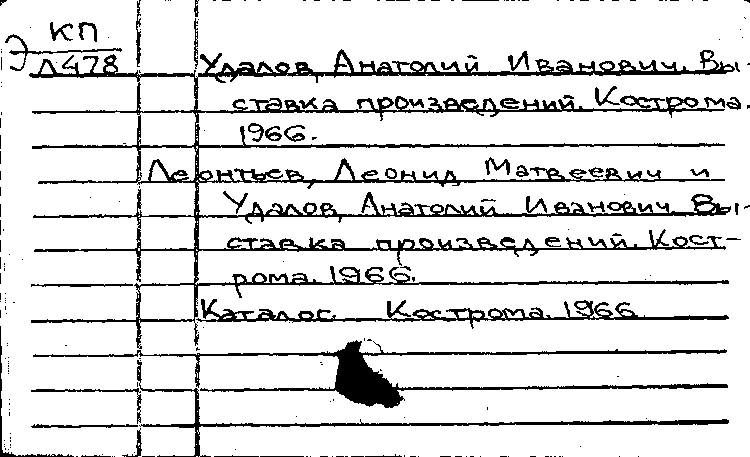 Э КП
Л478
Удалов, Анатолий Иванович. Вы-
ставка произведений. Кострома.
1966.
Леонтьев, Леонид Матвеевич и
Удалов, Анатолий Иванович. Вы-
ставка произведений. Кост-
рома. 1966.
Каталог. Кострома. 1966